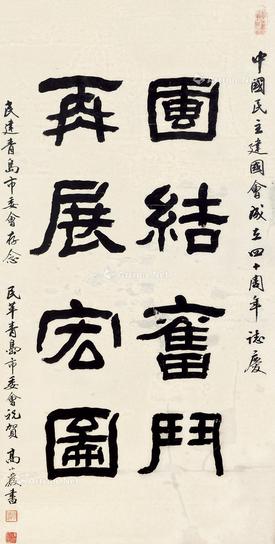 中國民主建國會成立四十周年誌慶
團結奮鬥
再展宏圖
民建青島市委會存念 民革青島市委會祝賀 高小巖書